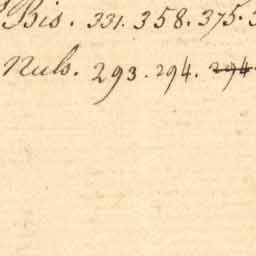 Bis. 331. 358. 375.
Nuls. 293. 294. 294